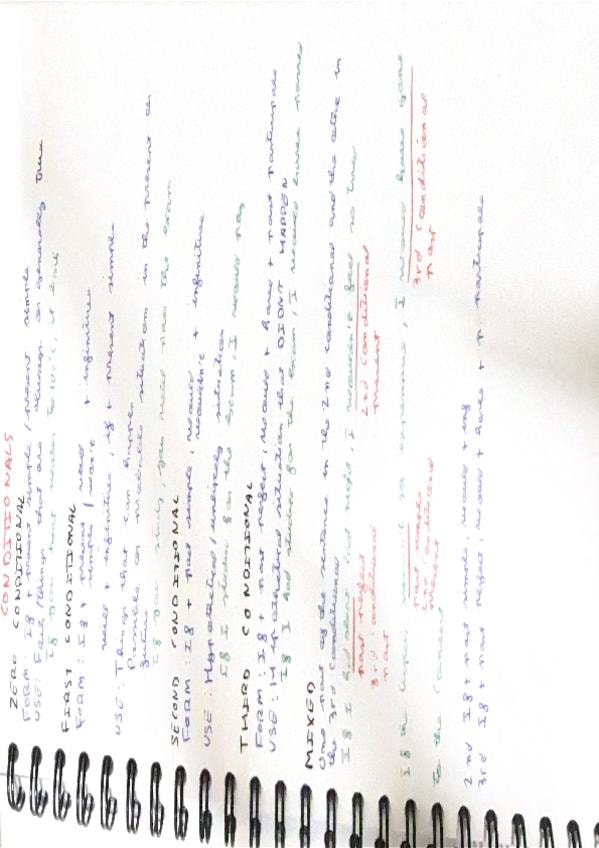 CONDITIONALS
ZERO CONDITIONAL
FORM: If + present simple / present simple
USE: Facts/things that are always or generally true
If you heat water to 100°C, it boils
FIRST CONDITIONAL
FORM: If + present simple / will / won't + infinitive
will + infinitive, if + present simple
USE: Things that can happen.
Possible or probable situation in the present or
future
If you study, you will pass the exam
SECOND CONDITIONAL
FORM: If + past simple, would / wouldn't + infinitive
USE: Hypothetical/unlikely situation
If I studied for the exam, I would pass
THIRD CONDITIONAL
FORM: If + past perfect, would + have + past participle
USE: Hypothetical situation that DIDNT HAPPEN
If I had studied for the exam, I would have passed
MIXED
One part of the sentence in the 2nd conditional and the other in
the 3rd conditional
If I had slept last night, I wouldn't feel so tired
past perfect 2nd Conditional
3rd Conditional present
past
If the were't so expensive, I would have gone
past simple 3rd Conditional
2nd Conditional past
present
to the concert
2nd If + past simple, would + inf
3rd If + past perfect, would + have + p. participle